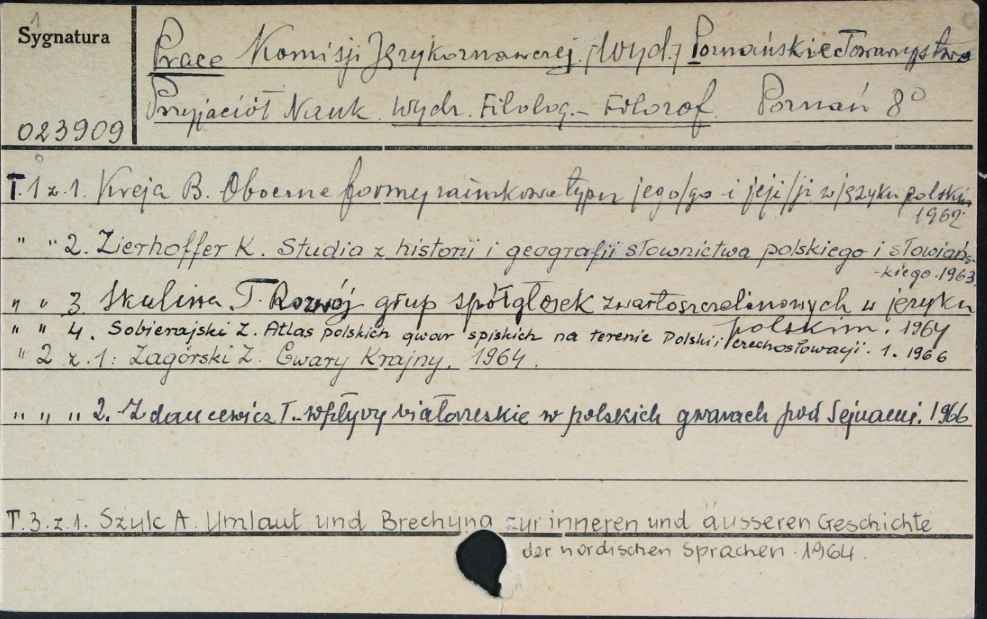 Sygnatura
023909
Prace Komisji Językoznawczej. /Wyd./ Poznańskie Towarzystwo
Przyjaciół Nauk. Wydz. Filolog.- Filozof. Poznań 8°
T.1 z.1. Kreja B. Oboczne formy zaimkowe typu jego/go i jej/ji w języku polskim
1962.
" " 2. Zierhoffer K. Studia z historii i geografii słownictwa polskiego i słowiańs-
-kiego. 1963.
" " 3. Skulina T. Rozwój grup spółgłosek zwartoszczelinowych w języku
polskim. 1964
" " 4. Sobierajski Z. Atlas polskich gwar spiskich na terenie Polski i Czechosłowacji. 1. 1966
" 2 z.1: Zagórski Z. Gwary Krajny. 1964.
" " " 2. Zdancewicz T. Wpływy białoruskie w polskich gwarach pod Sejnami. 1966
T.3.z.1. Szulc A. Umlaut und Brechung zur inneren und äusseren Geschichte
der nordischen Sprachen. 1964.